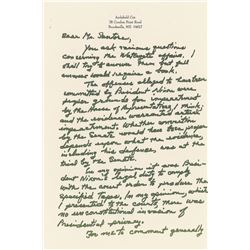 Archibald Cox
Dear Mr. Santore,
You ask various questions
concerning the Watergate affair. I
shall try to answer them but full
answer would require a book.
The offenses alleged to have been
committed by President Nixon were
proper grounds for impeachment
by the House of Representatives, I think,
and the evidence warranted actual
impeachment. Whether conviction
by the Senate would have been proper
depends upon what the evidence,
including his defenses, was at the
trial by the Senate.
In my opinion it was Presi-
dent Nixon's legal duty to comply
with the court order to produce the
specified Tapes. In my opinion, which
I presented to the courts, there was
no unconstitutional invasion of
Presidential privacy.
For me to comment generally